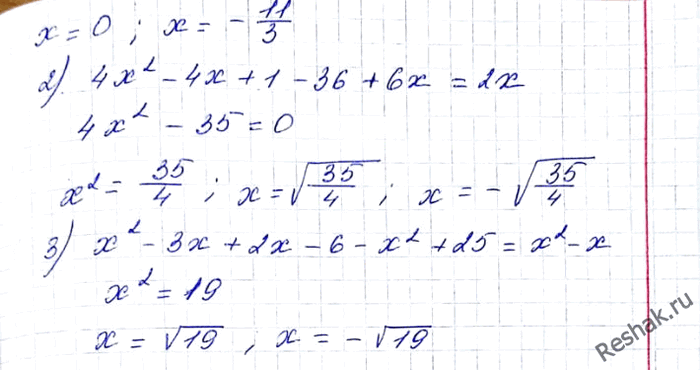 x = 0 ; x = - 11/3
2) 4x² - 4x + 1 - 36 + 6x = 2x
4x² - 35 = 0
x² = 35/4 ; x = √(35/4) ; x = - √(35/4)
3) x² - 3x + 2x - 6 - x² + 25 = x² - x
x² = 19
x = √19 , x = - √19
Reshak.ru